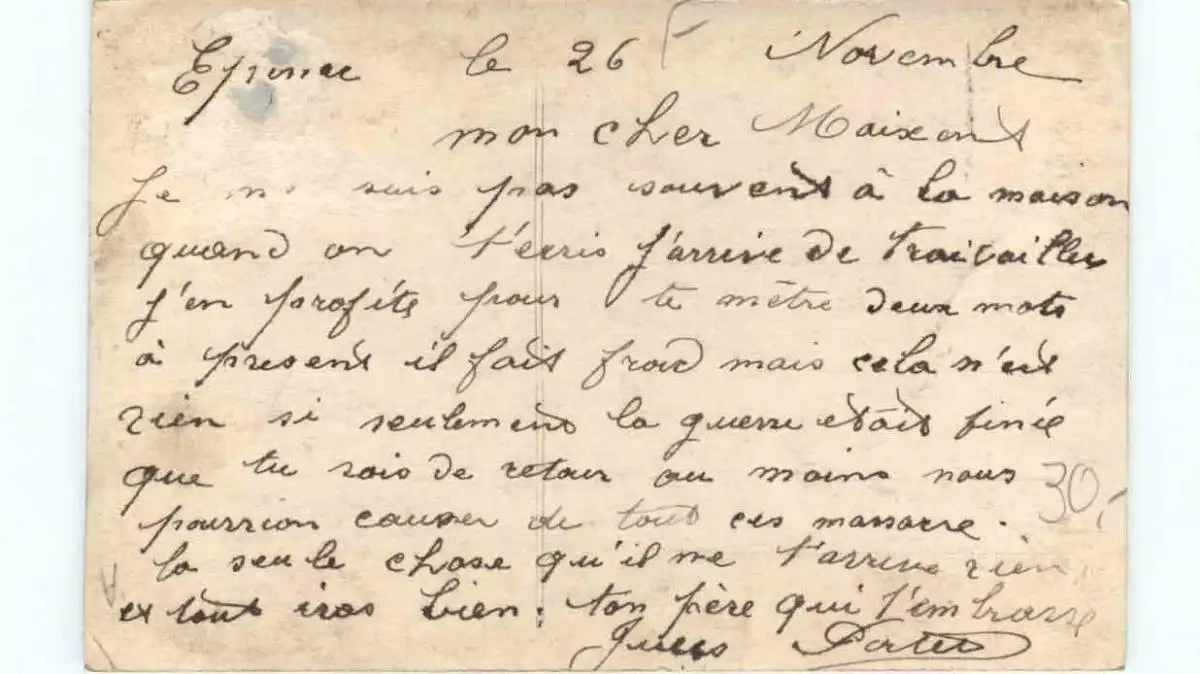 Epinac le 26 Novembre
mon cher Maixent
Je ne suis pas souvent à la maison
quand on t'ecris j'arrive de travailler
j'en profite pour te mètre deux mots
à present il fait froid mais cela n'est
rien si seulement la guerre etait finie
que tu sois de retour au moins nous
30,-
pourrion causer de tout ces massacre.
la seule chose qu'il ne t'arrive rien
et tout iras bien. ton père qui t'embrasse